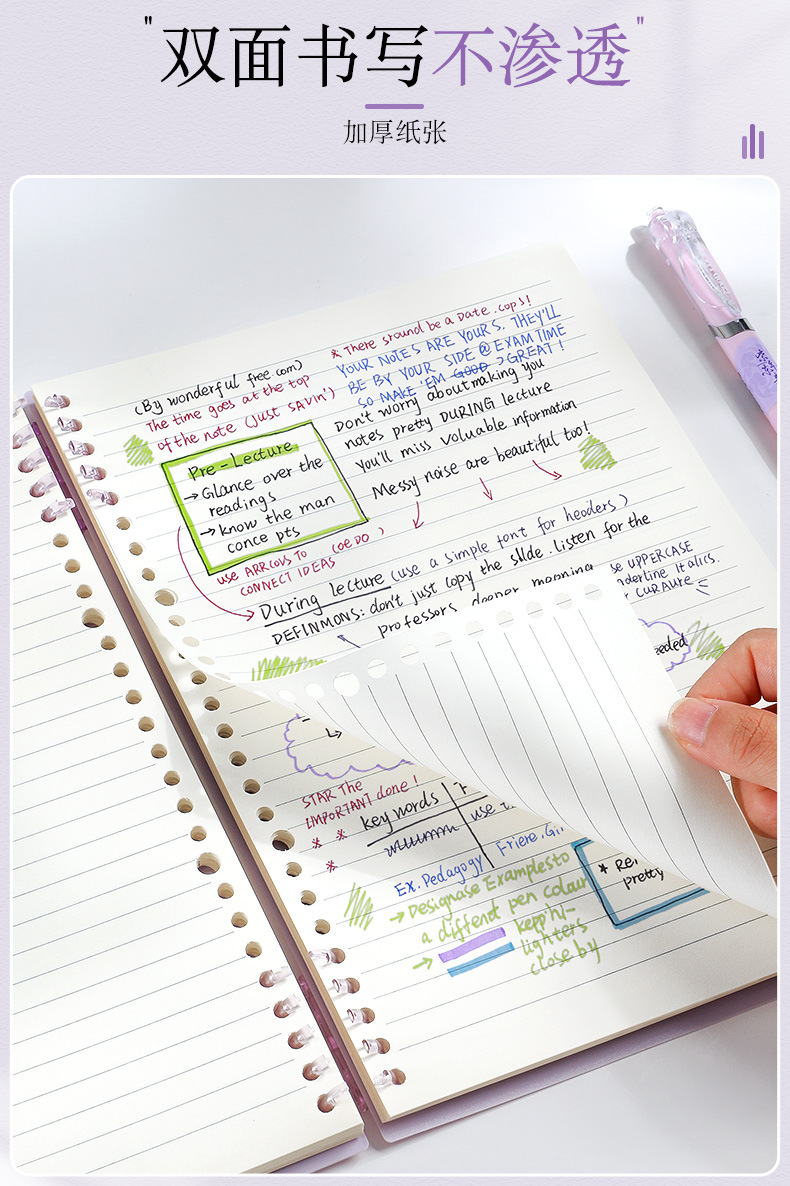 "双面书写不渗透"
加厚纸张
* There stound be a Date .cops!
(By wonderful free.com)
The time goes at the top
of the note (Just SAVin')
YOUR NOTES ARE YOURS. THEY'LL
BE BY YOUR SIDE @ EXAM TIME
SO MAKE 'EM GOOD > GREAT!
Don't worry about making you
notes pretty DURING lecture
You'll miss voluable information
Messy noise are beautiful too!
Pre-Lecture
→Glance over the
readings
→know the man
conce pts
use ARRCOVS TO (OEDO)
CONNECT IDEAS
During lecture (use a simple font for heoders)
DEFINMONS: don't just copy the slide .listen for the
professors deeper meaning
SE UPPERCASE
nderline Italics.
CURAure
eeded
STAR The
IMPORTANT done!
* *
*
key words
use
Ex. Pedagogy
Friere, Gi
→Designase Examplesto
a differet pen colour
→
kepp hi-
lighters
close by
* Re
pretty